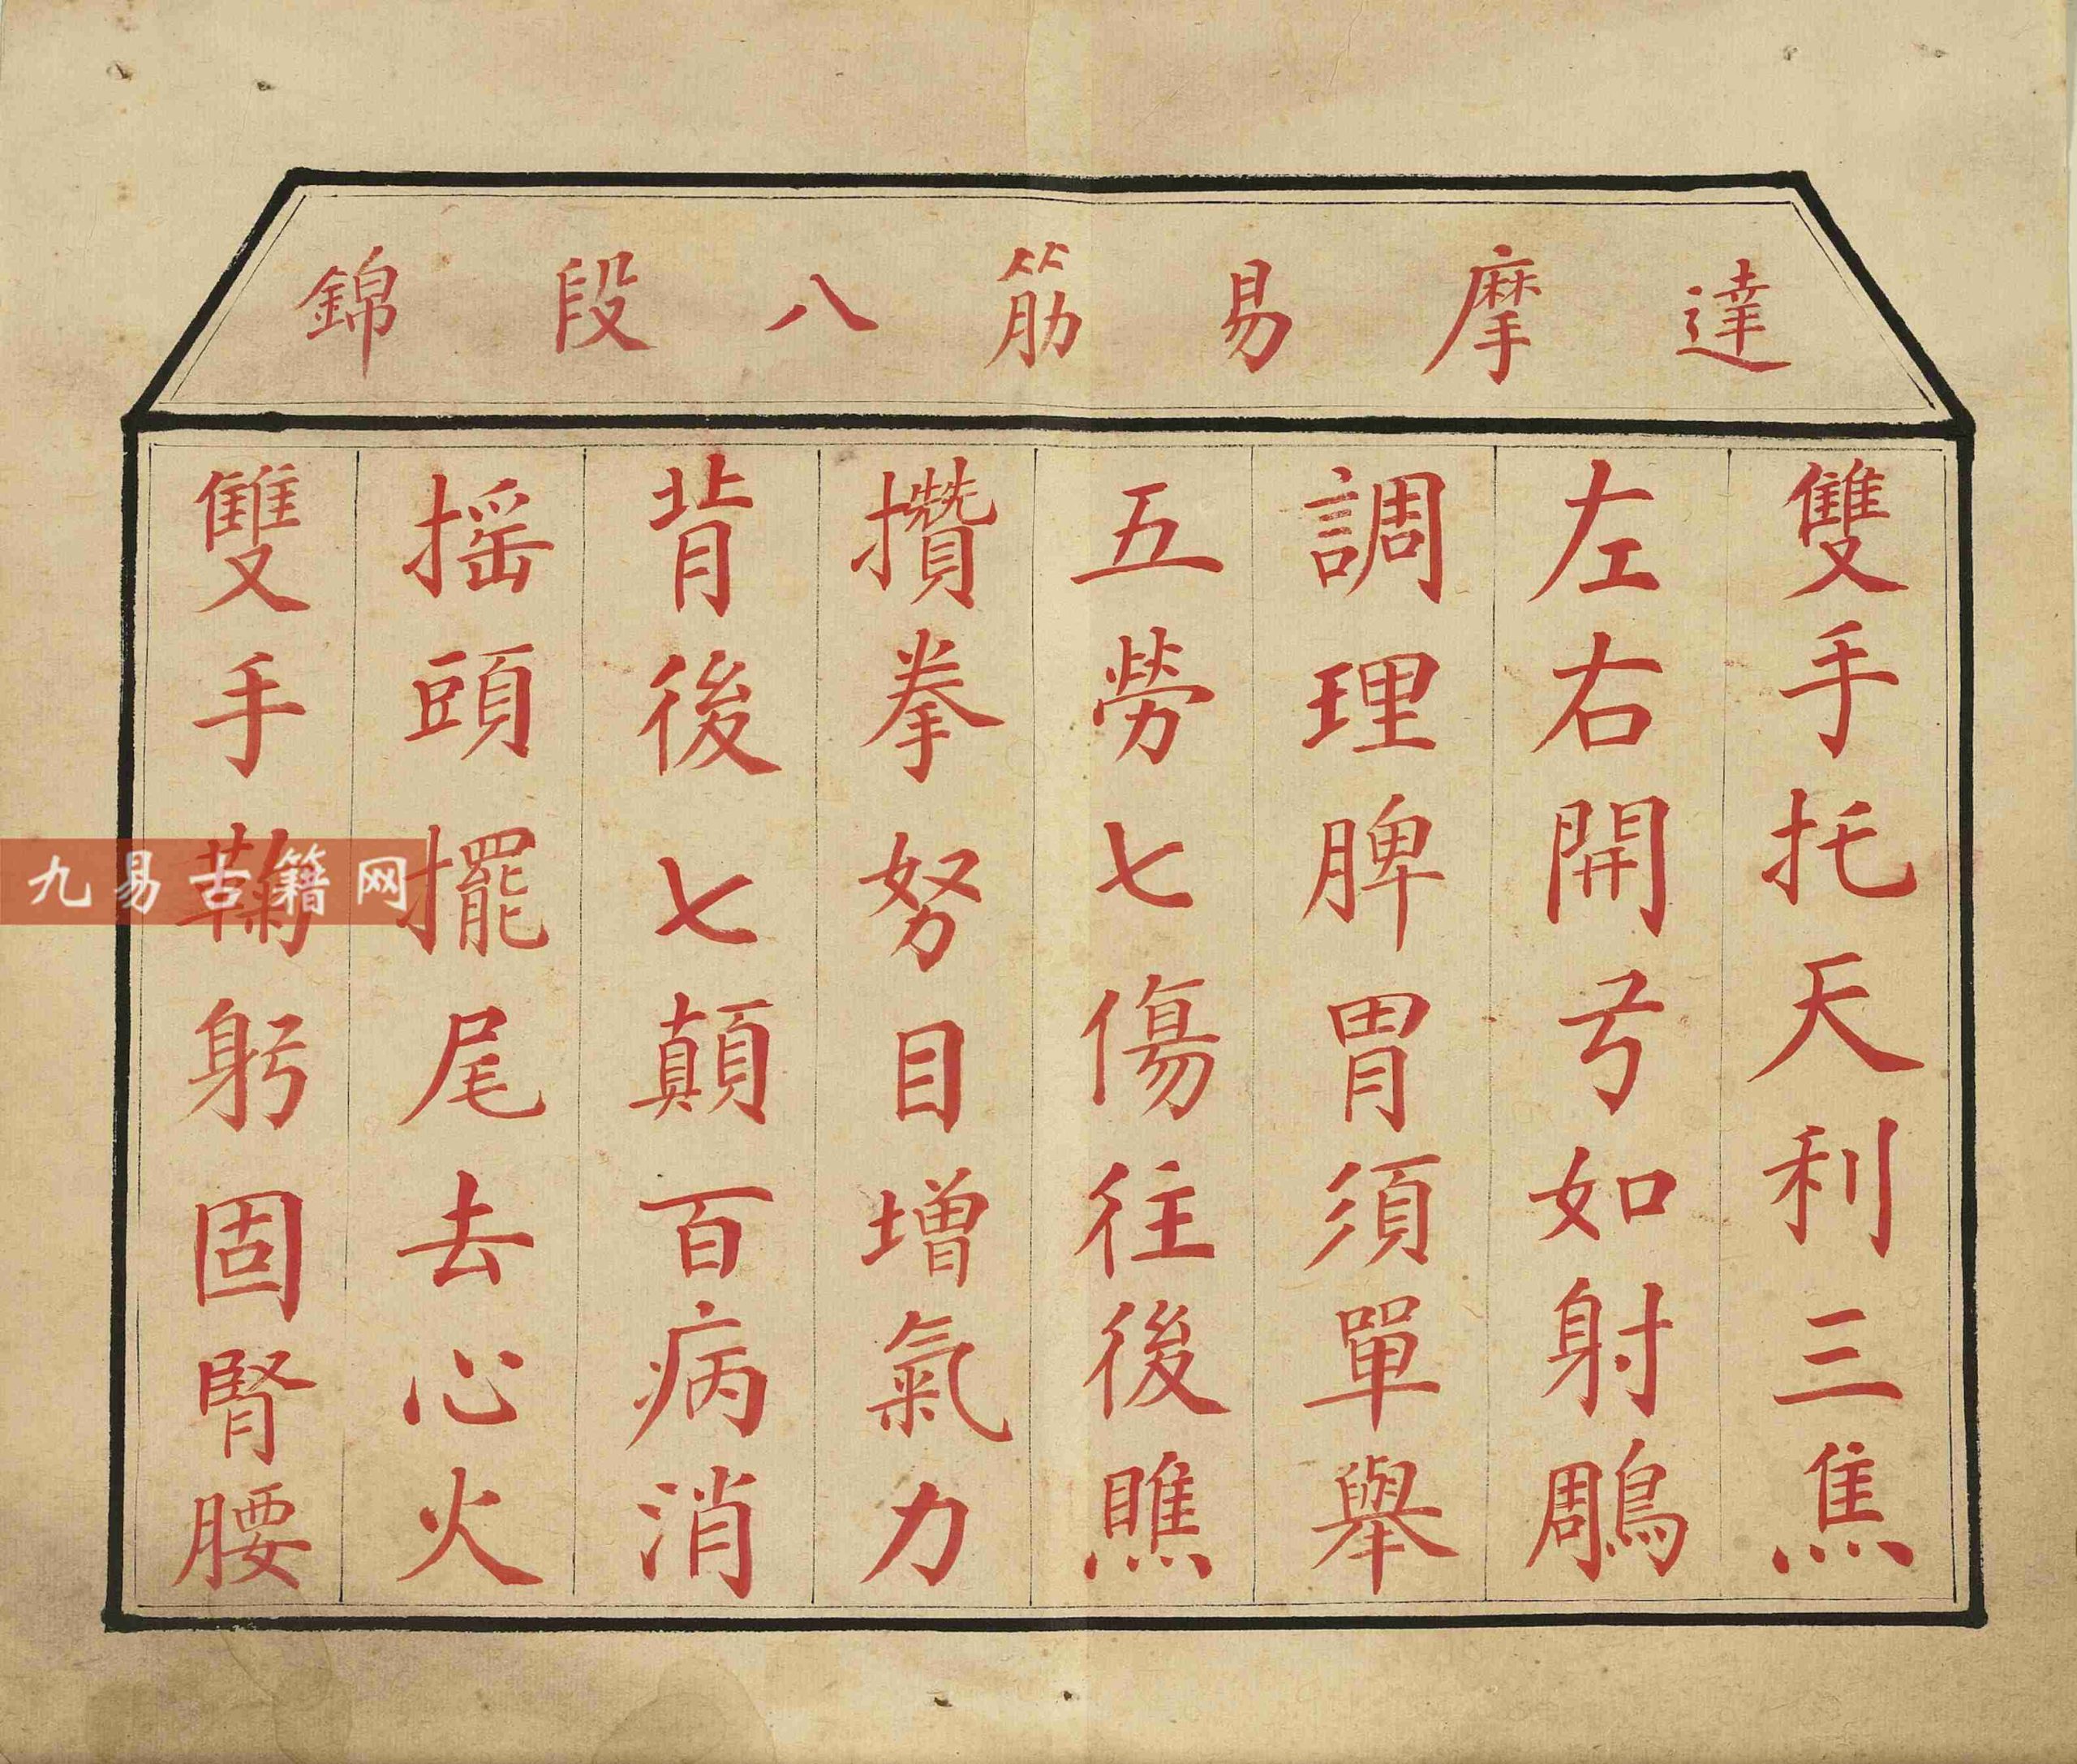 達摩易筋八段錦
雙手托天利三焦
左右開弓如射鵰
調理脾胃須單舉
五勞七傷往後瞧
攢拳努目增氣力
背後七顛百病消
摇頭擺尾去心火
雙手鞠躬固腎腰
九易古籍网